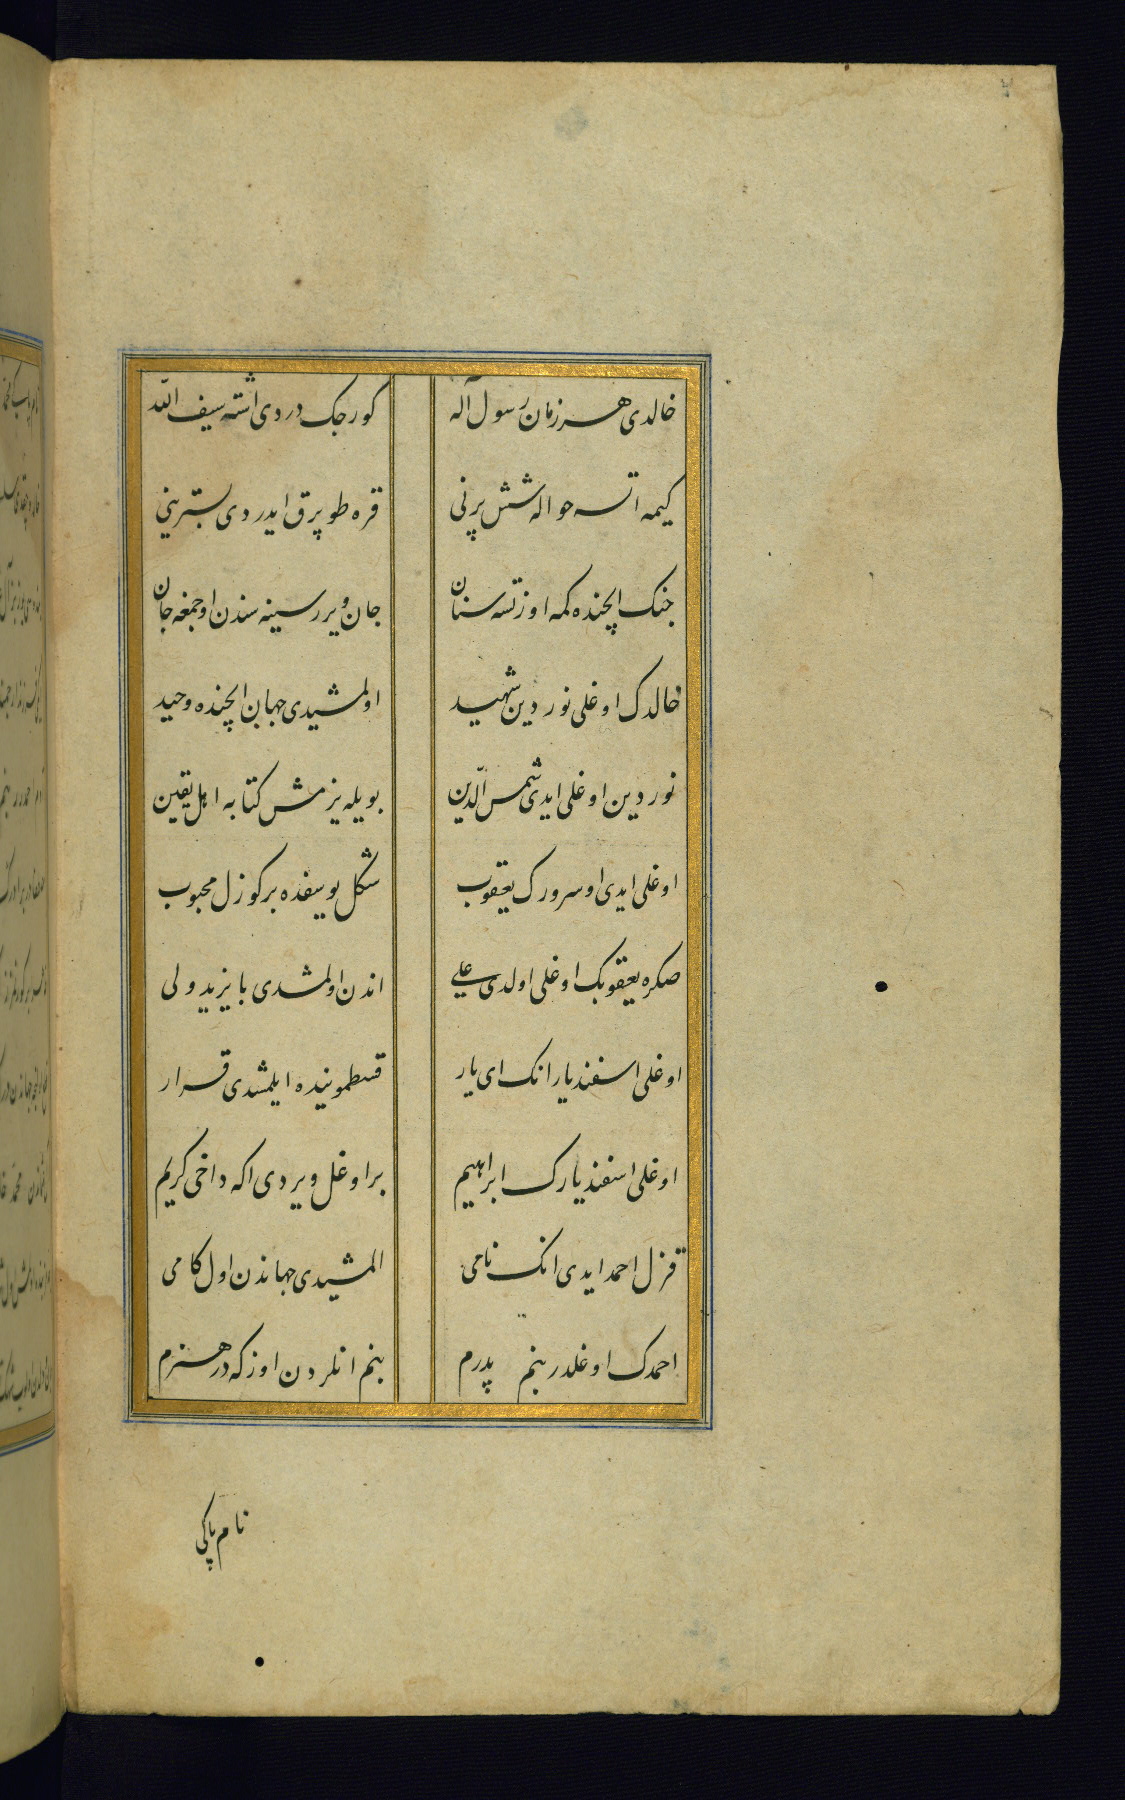 خالدی هر زمان رسول اله کورجک دردی اشته سیف الله
کیمه اتسه حواله شش پرنی قره طوپرق ایدردی بسترینی
جنک ایچنده کمه اوزتسه سنان جان ویرر سینه سندن اوجمغه جان
خالدک اوغلی نور دین شهید اولمشیدی جهان ایچنده وحید
نور دین اوغلی ایدی شمس الدین بویله یزمش کتابه اهل یقین
اوغلی ایدی او سرورک یعقوب شکل یوسفده بر کوزل محبوب
صکره یعقوبک اوغلی اولدی علی اندن اولمشدی بایزید ولی
اوغلی اسفندیار انک ای یار قسطمونیده ایلمشدی قرار
اوغلی اسفندیارک ابراهیم بر اوغل ویردی اکه داخی کریم
قزل احمد ایدی انک نامی المشیدی جهاندن اول کامی
احمدک اوغلدر بنم پدرم بنم انلردن اوزکه در هنرم
نام پاکی